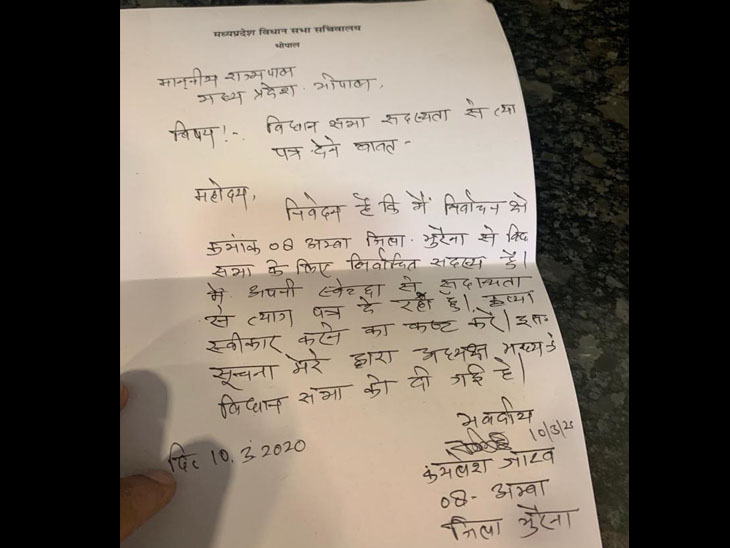 मध्यप्रदेश विधान सभा सचिवालय
भोपाल
माननीय राज्यपाल
मध्य प्रदेश भोपाल,
विषय!- विधान सभा सदस्यता से त्या
पत्र देने बावत -
महोदय,
निवेदन है कि मैं निर्वाचन क्षे
क्रमांक 08 अम्बा जिला मुरैना से विध
सभा के लिए निर्वाचित सदस्य हूँ।
मैं अपनी स्वेच्छा से सदस्यता
से त्याग पत्र दे रहा हूँ। कृप्या
स्वीकार करने का कष्ट करें। इस
सूचना मेरे द्वारा अध्यक्ष मध्यप्रदे
विधान सभा को दी गई है।
भवदीय
10/3/20
कमलेश जाटव
08- अम्बा
जिला मुरैना
दि 10.3.2020